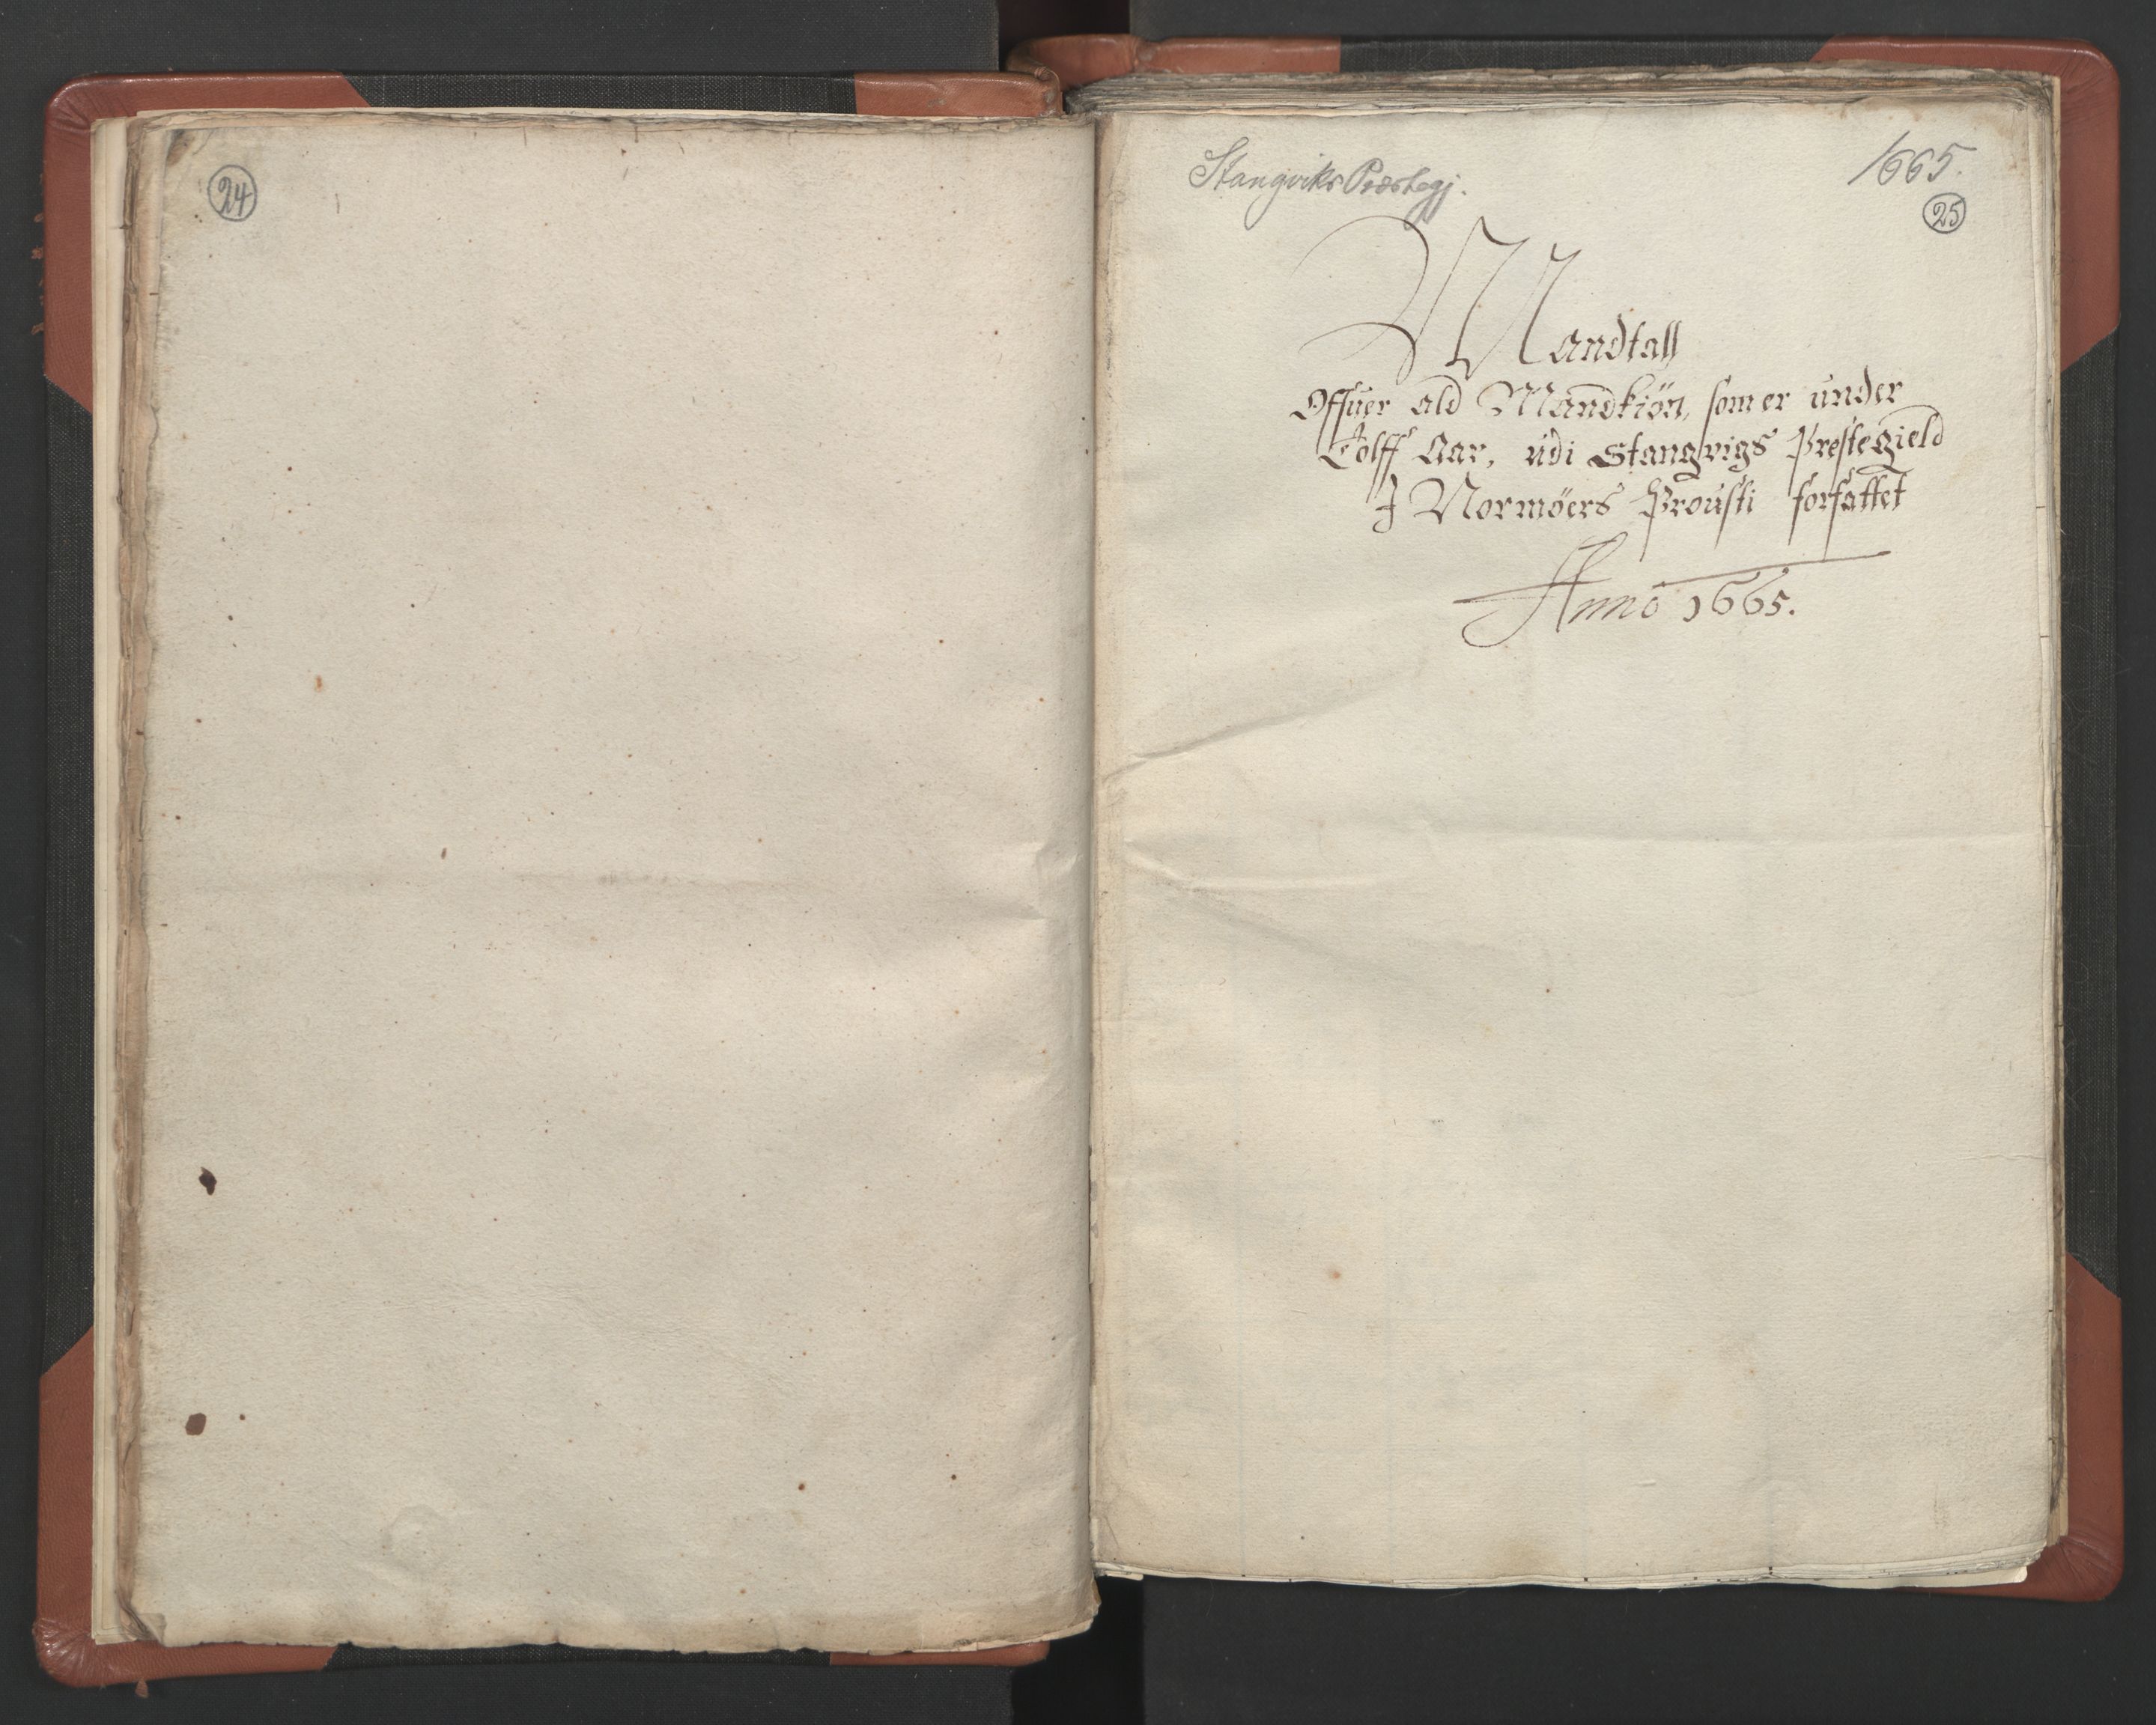 24
Stangviks Præstegj.
1665.
25
Mandtall
Offuer ald Mandkiøn, som er under
Tolff Aar, udi Stangvigs Prestegield
I Normøers Prousti forfattet
Anno 1665.